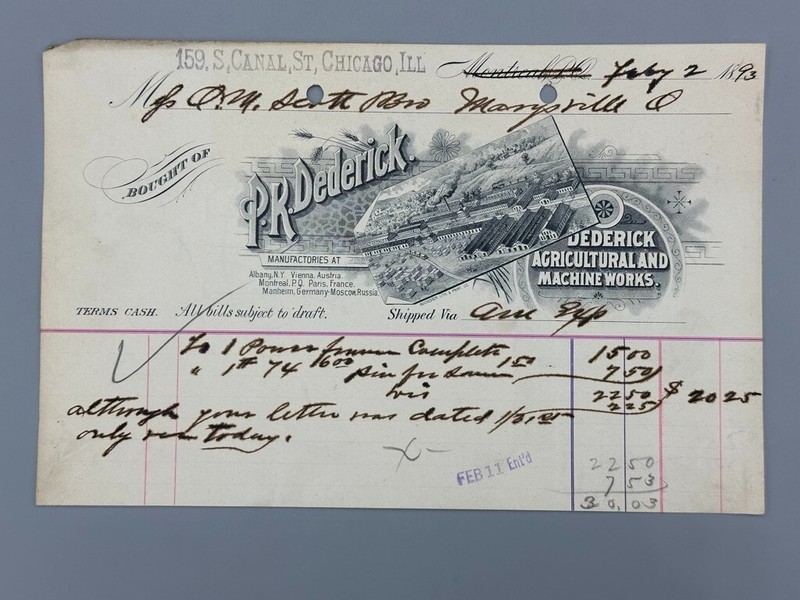 159, S, CANAL, ST, CHICAGO, ILL
Montreal, P.Q. Feby 2 1893
O. M. Scott & Bro Marysville O
BOUGHT OF
P.K. Dederick.
MANUFACTORIES AT
Albany, N.Y. Vienna, Austria.
Montreal, P.Q. Paris, France.
Manheim, Germany - Moscow, Russia.
DEDERICK
AGRICULTURAL AND
MACHINE WORKS.
TERMS CASH. All bills subject to draft. Shipped Via Am Exp
To 1 Complete 1500
" 1 # 74 for same 750
2250 $ 2025
225
although your letter was dated
only rec today.
FEB 11 Ent'd
2250
753
30.03